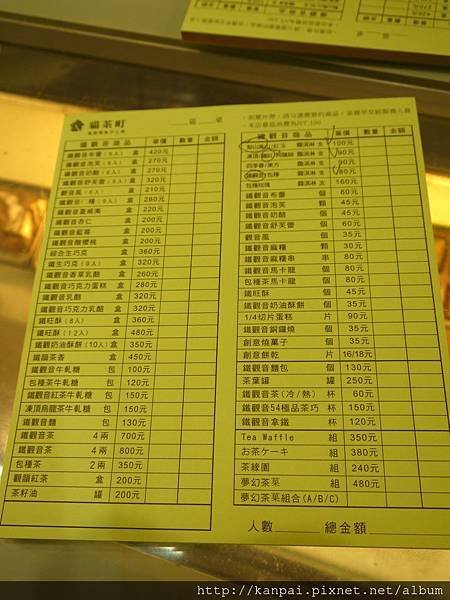 貓茶町
區 桌
鐵觀音商品 單價 數量 金額
鐵觀音布蕾(8入) 盒 420元
鐵觀音泡芙(6入) 盒 270元
鐵觀音奶酪(6入) 盒 270元
鐵觀音舒芙蕾(6入) 盒 330元
觀音風(6入) 盒 210元
鐵觀音 糬(9入) 盒 300元
鐵觀音夏威夷 盒 220元
鐵觀音杏仁 盒 200元
鐵觀音藍莓 盒 200元
鐵觀音酸櫻桃 盒 200元
綜合生巧克 盒 360元
鐵生巧克(9入) 盒 320元
鐵觀音香草乳酪 盒 260元
鐵觀音巧克力蛋糕 盒 280元
鐵觀音乳酪 盒 320元
鐵觀音巧克力乳酪 盒 320元
鐵旺酥(8入) 盒 360元
鐵旺酥(12入) 盒 480元
鐵觀奶油酥餅(10入) 盒 350元
鐵韻茶香 盒 450元
鐵觀音牛軋糖 包 100元
包種茶牛軋糖 包 120元
鐵觀音紅茶牛軋糖 包 150元
凍頂烏龍茶牛軋糖 包 150元
鐵觀音麵 包 130元
鐵觀音茶 4兩 700元
鐵觀音茶 4兩 800元
包種茶 2兩 350元
觀韻紅茶 盒 200元
茶籽油 罐 200元
本店最低消費為NT 100
鐵觀音商品 單價 數量 金額
紅玉 霜淇淋 支 100元
霜淇淋 支 90元
四季春/東方 霜淇淋 支 90元
鐵觀音/包種 霜淇淋 支 80元
包種玫瑰 霜淇淋 支 160元
鐵觀音布蕾 個 60元
鐵觀音泡芙 顆 45元
鐵觀音奶酪 個 45元
鐵觀音舒芙蕾 個 60元
觀音風 個 35元
鐵觀音麻糬 顆 30元
鐵觀音麻糬串 串 80元
鐵觀音馬卡龍 個 80元
包種茶馬卡龍 個 80元
鐵旺酥 個 45元
鐵觀音奶油酥餅 個 35元
1/4切片蛋糕 片 90元
鐵觀音銅鑼燒 個 45元
創意燒菓子 個 35元
創意餅乾 片 16/18元
鐵觀音麵包 個 130元
茶葉罐 罐 250元
鐵觀音茶(冷/熱) 杯 60元
鐵觀音54極品茶巧 杯 150元
鐵觀音拿鐵 杯 120元
Tea Waffle 組 350元
お茶ケーキ 組 380元
茶線園 組 240元
夢幻茶菓 組 480元
夢幻茶菓組合(A/B/C)
人數 總金額
http://kanpai.pixnet.net/album